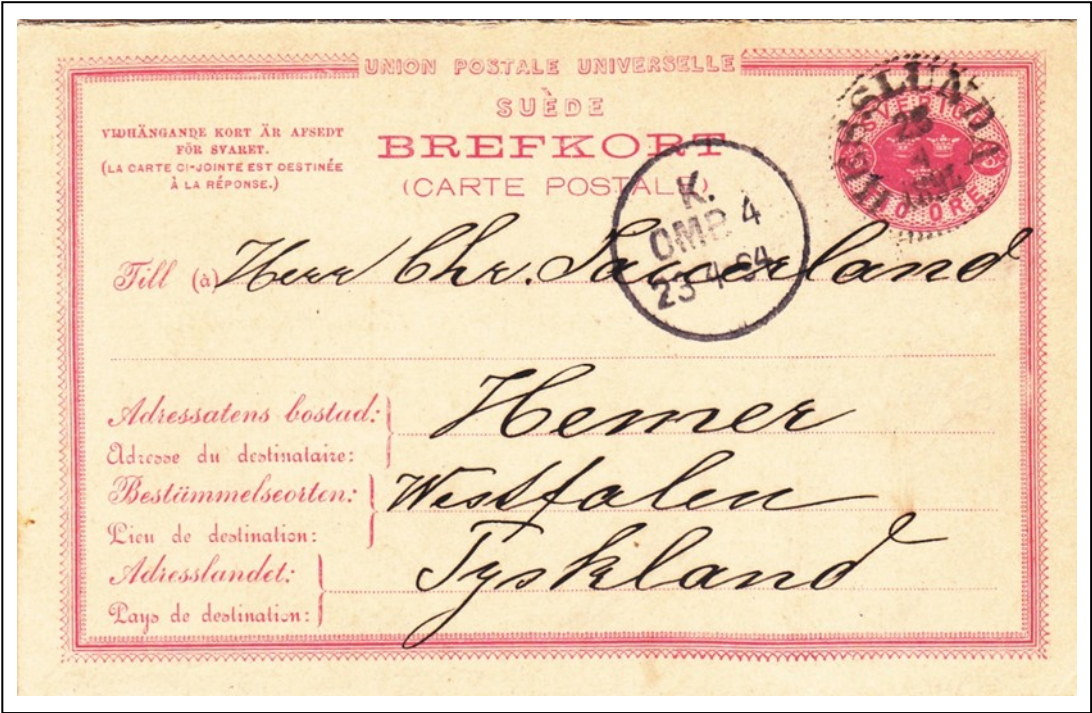 UNION POSTALE UNIVERSELLE
SUÈDE
BREFKORT
(CARTE POSTALE)
VIDHÄNGANDE KORT ÄR AFSEDT
FÖR SVARET.
(LA CARTE CI-JOINTE EST DESTINÉE
À LA RÉPONSE.)
SVERIGE
TIO ÖRE
K.
OMB 4
23 4 94
Till (à) Herr Chr. Sauerland
Adressatens bostad: Hemer
Adresse du destinataire:
Bestämmelseorten: Westfalen
Lieu de destination:
Adresslandet: Tyskland
Pays de destination: